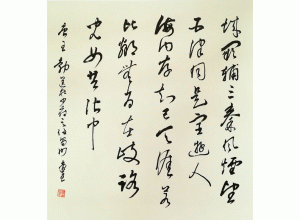 城闕輔三秦風煙望
五津同是宦遊人
海内存知己天涯若
比鄰無為在歧路
兒女共沾巾
唐王勃送杜少府之任蜀州